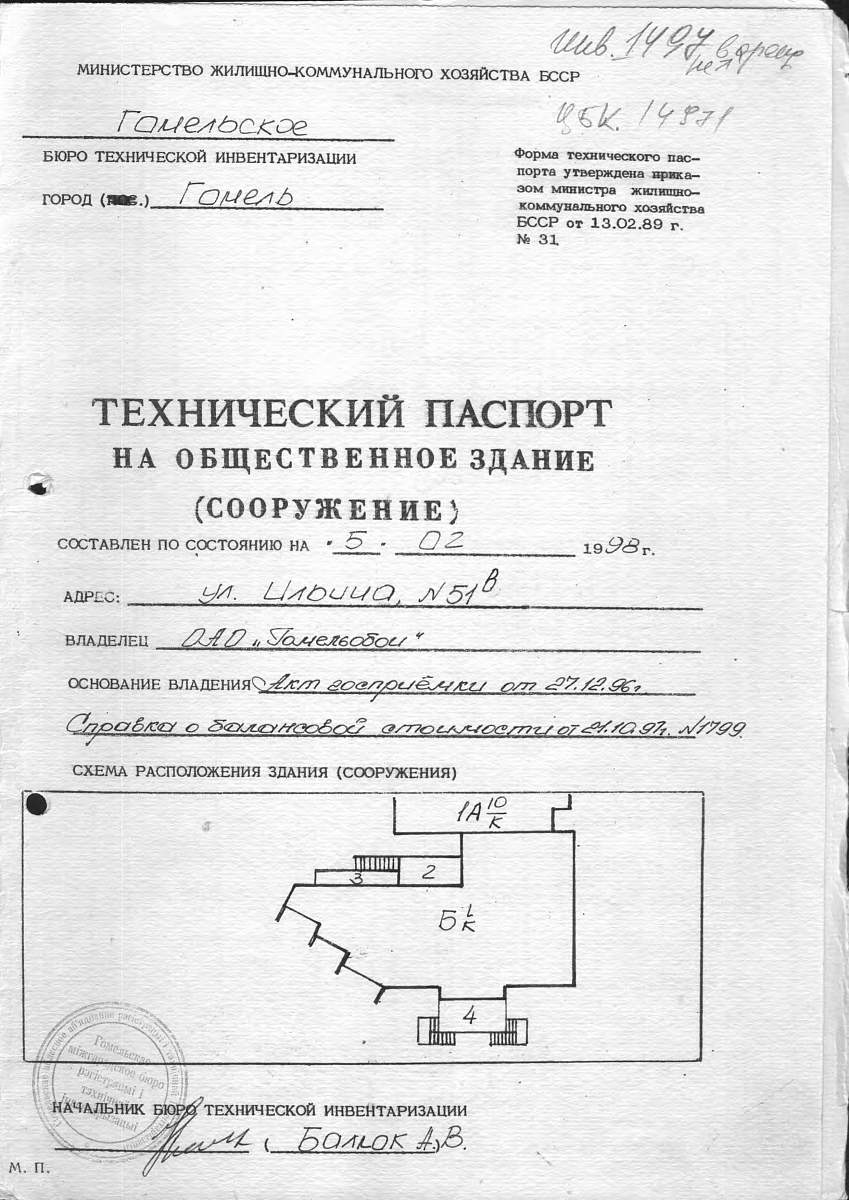 инв. 1497
МИНИСТЕРСТВО ЖИЛИЩНО-КОММУНАЛЬНОГО ХОЗЯЙСТВА БССР
ЦБК. 14971
Гомельское
БЮРО ТЕХНИЧЕСКОЙ ИНВЕНТАРИЗАЦИИ
ГОРОД (пос.) Гомель
Форма технического пас-
порта утверждена прика-
зом министра жилищно-
коммунального хозяйства
БССР от 13.02.89 г.
№ 31.
ТЕХНИЧЕСКИЙ ПАСПОРТ
НА ОБЩЕСТВЕННОЕ ЗДАНИЕ
(СООРУЖЕНИЕ)
СОСТАВЛЕН ПО СОСТОЯНИЮ НА "5" 02 1998 г.
АДРЕС: ул. Ильича, N 51в
ВЛАДЕЛЕЦ ОАО "Гомельобои"
ОСНОВАНИЕ ВЛАДЕНИЯ Акт госприёмки от 27.12.96г.
Справка о балансовой стоимости от 21.10.97г. N1799.
СХЕМА РАСПОЛОЖЕНИЯ ЗДАНИЯ (СООРУЖЕНИЯ)
1А 10/К
3 2
Б 1/К
4
Гомельскае
міжгарадское бюро
рэгістрацыі і
тэхнічнай
інвентарызацыі
НАЧАЛЬНИК БЮРО ТЕХНИЧЕСКОЙ ИНВЕНТАРИЗАЦИИ
( А.В.
М. П.